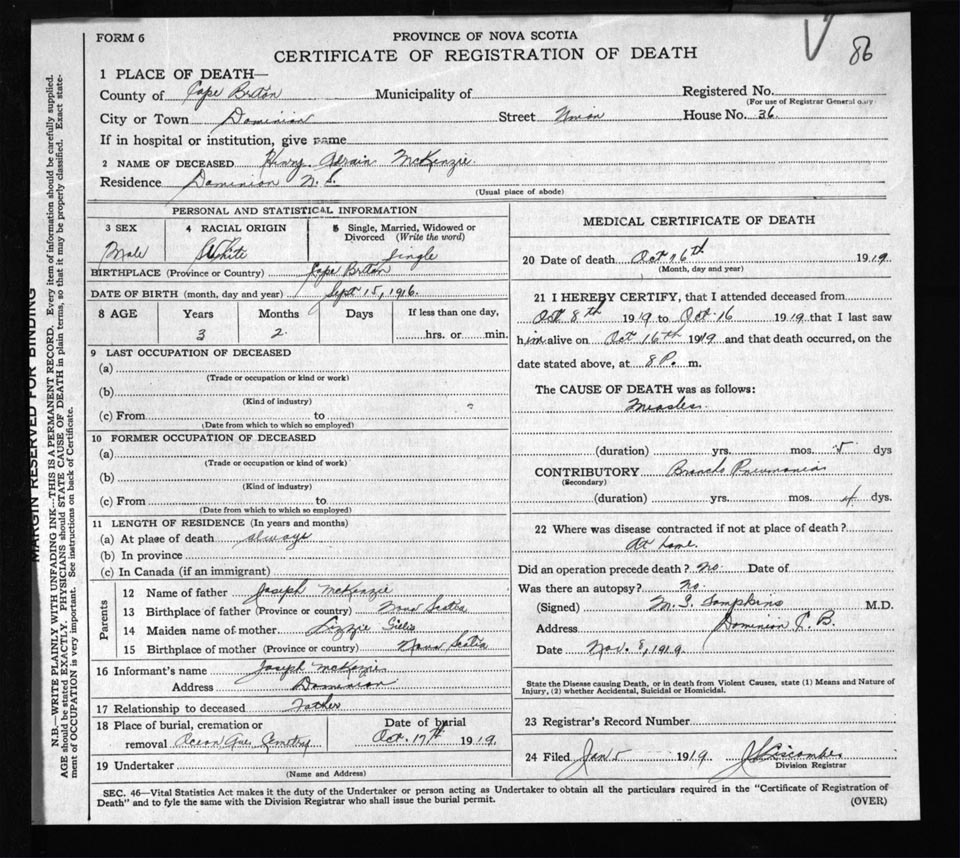 FORM 6
PROVINCE OF NOVA SCOTIA
86
CERTIFICATE OF REGISTRATION OF DEATH
1 PLACE OF DEATH—
County of Cape Breton Municipality of Registered No.
(For use of Registrar General only)
City or Town Dominion Street Union House No. 36.
If in hospital or institution, give name
2 NAME OF DECEASED Henry McKenzie.
Residence Dominion N.S.
(Usual place of abode)
PERSONAL AND STATISTICAL INFORMATION
3 SEX 4 RACIAL ORIGIN 5 Single, Married, Widowed or Divorced (Write the word)
Male White Single
BIRTHPLACE (Province or Country) Cape Breton
DATE OF BIRTH (month, day and year) Sept 15, 1916.
8 AGE Years Months Days If less than one day,
3 2 hrs. or min.
9 LAST OCCUPATION OF DECEASED
(a)
(Trade or occupation or kind or work)
(b)
(Kind of industry)
(c) From to
(Date from which to which so employed)
10 FORMER OCCUPATION OF DECEASED
(a)
(Trade or occupation or kind of work)
(b)
(Kind of industry)
(c) From to
(Date from which to which so employed)
11 LENGTH OF RESIDENCE (In years and months)
(a) At place of death always
(b) In province
(c) In Canada (if an immigrant)
Parents
12 Name of father Joseph McKenzie
13 Birthplace of father (Province or country) Nova Scotia
14 Maiden name of mother Lizzie Gillis
15 Birthplace of mother (Province or country) Nova Scotia
16 Informant's name Joseph McKenzie
Address Dominion
17 Relationship to deceased Father
18 Place of burial, cremation or removal Ocean Ave. Cemetry
Date of burial
Oct. 17th 1919.
19 Undertaker
(Name and Address)
MEDICAL CERTIFICATE OF DEATH
20 Date of death Oct 16th 1919.
(Month, day and year)
21 I HEREBY CERTIFY, that I attended deceased from
Oct 8th 1919 to Oct. 16 1919 that I last saw
him alive on Oct 16th 1919 and that death occurred, on the
date stated above, at 8 P. m.
The CAUSE OF DEATH was as follows:
Measles.
(duration) yrs. mos. 5 dys
CONTRIBUTORY Broncho Pneumonia
(Secondary)
(duration) yrs. mos. 4 dys.
22 Where was disease contracted if not at place of death?
At home.
Did an operation precede death? No Date of
Was there an autopsy? No.
(Signed) M. G. Tompkins M.D.
Address Dominion C. B.
Date Nov. 8, 1919.
State the Disease causing Death, or in death from Violent Causes, state (1) Means and Nature of
Injury, (2) whether Accidental, Suicidal or Homicidal.
23 Registrar's Record Number
24 Filed Jan 5 1919
Division Registrar
SEC. 46—Vital Statistics Act makes it the duty of the Undertaker or person acting as Undertaker to obtain all the particulars required in the "Certificate of Registration of
Death" and to fyle the same with the Division Registrar who shall issue the burial permit.
(OVER)
MARGIN RESERVED FOR BINDING
N.B.—WRITE PLAINLY WITH UNFADING INK—THIS IS A PERMANENT RECORD. Every item of information should be carefully supplied.
AGE should be stated EXACTLY. PHYSICIANS should STATE CAUSE OF DEATH in plain terms, so that it may be properly classified. Exact state-
ment of OCCUPATION is very important. See instructions on back of Certificate.